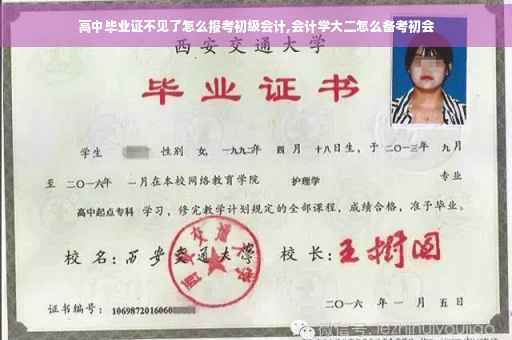 高中毕业证不见了怎么报考初级会计,会计学大二怎么备考初会
西安交通大学
毕业证书
学生 性别 女, 一九九二年 四月 十八日生, 于二〇一三年 九月
至 二〇一六年 一月在本校网络教育学院 护理学 专业
高中起点专科 学习, 修完教学计划规定的全部课程, 成绩合格, 准予毕业。
校 名: 西安交通大学 校 长: 王树国
证书编号: 1069872016060
二〇一六 年 一 月 五 日
微信号: jezhihuiyoujiao